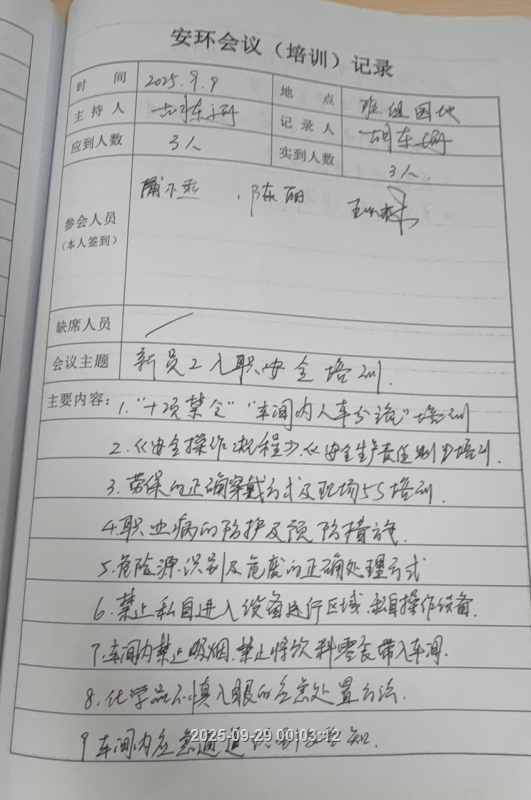 安环会议（培训）记录
时 间 2025.9.9 地 点 班组园地
主 持 人 记 录 人
应到人数 3人 实到人数 3人
参会人员 陈丽
（本人签到）
缺席人员
会议主题 新员工入职安全培训.
主要内容：1.“十项禁令”“车间内人车分流”培训
2.《安全操作规程》.《安全生产责任制》培训.
3.劳保的正确穿戴方式及现场5S培训.
4.职业病的防护及预防措施.
5.危险源识别及危废的正确处理方式
6.禁止私自进入设备运行区域.私自操作设备.
7.车间内禁止吸烟.禁止将饮料零食带入车间.
8.化学品不慎入眼的应急处置方法.
9 车间内应急通道
2025-09-29 00:03:12